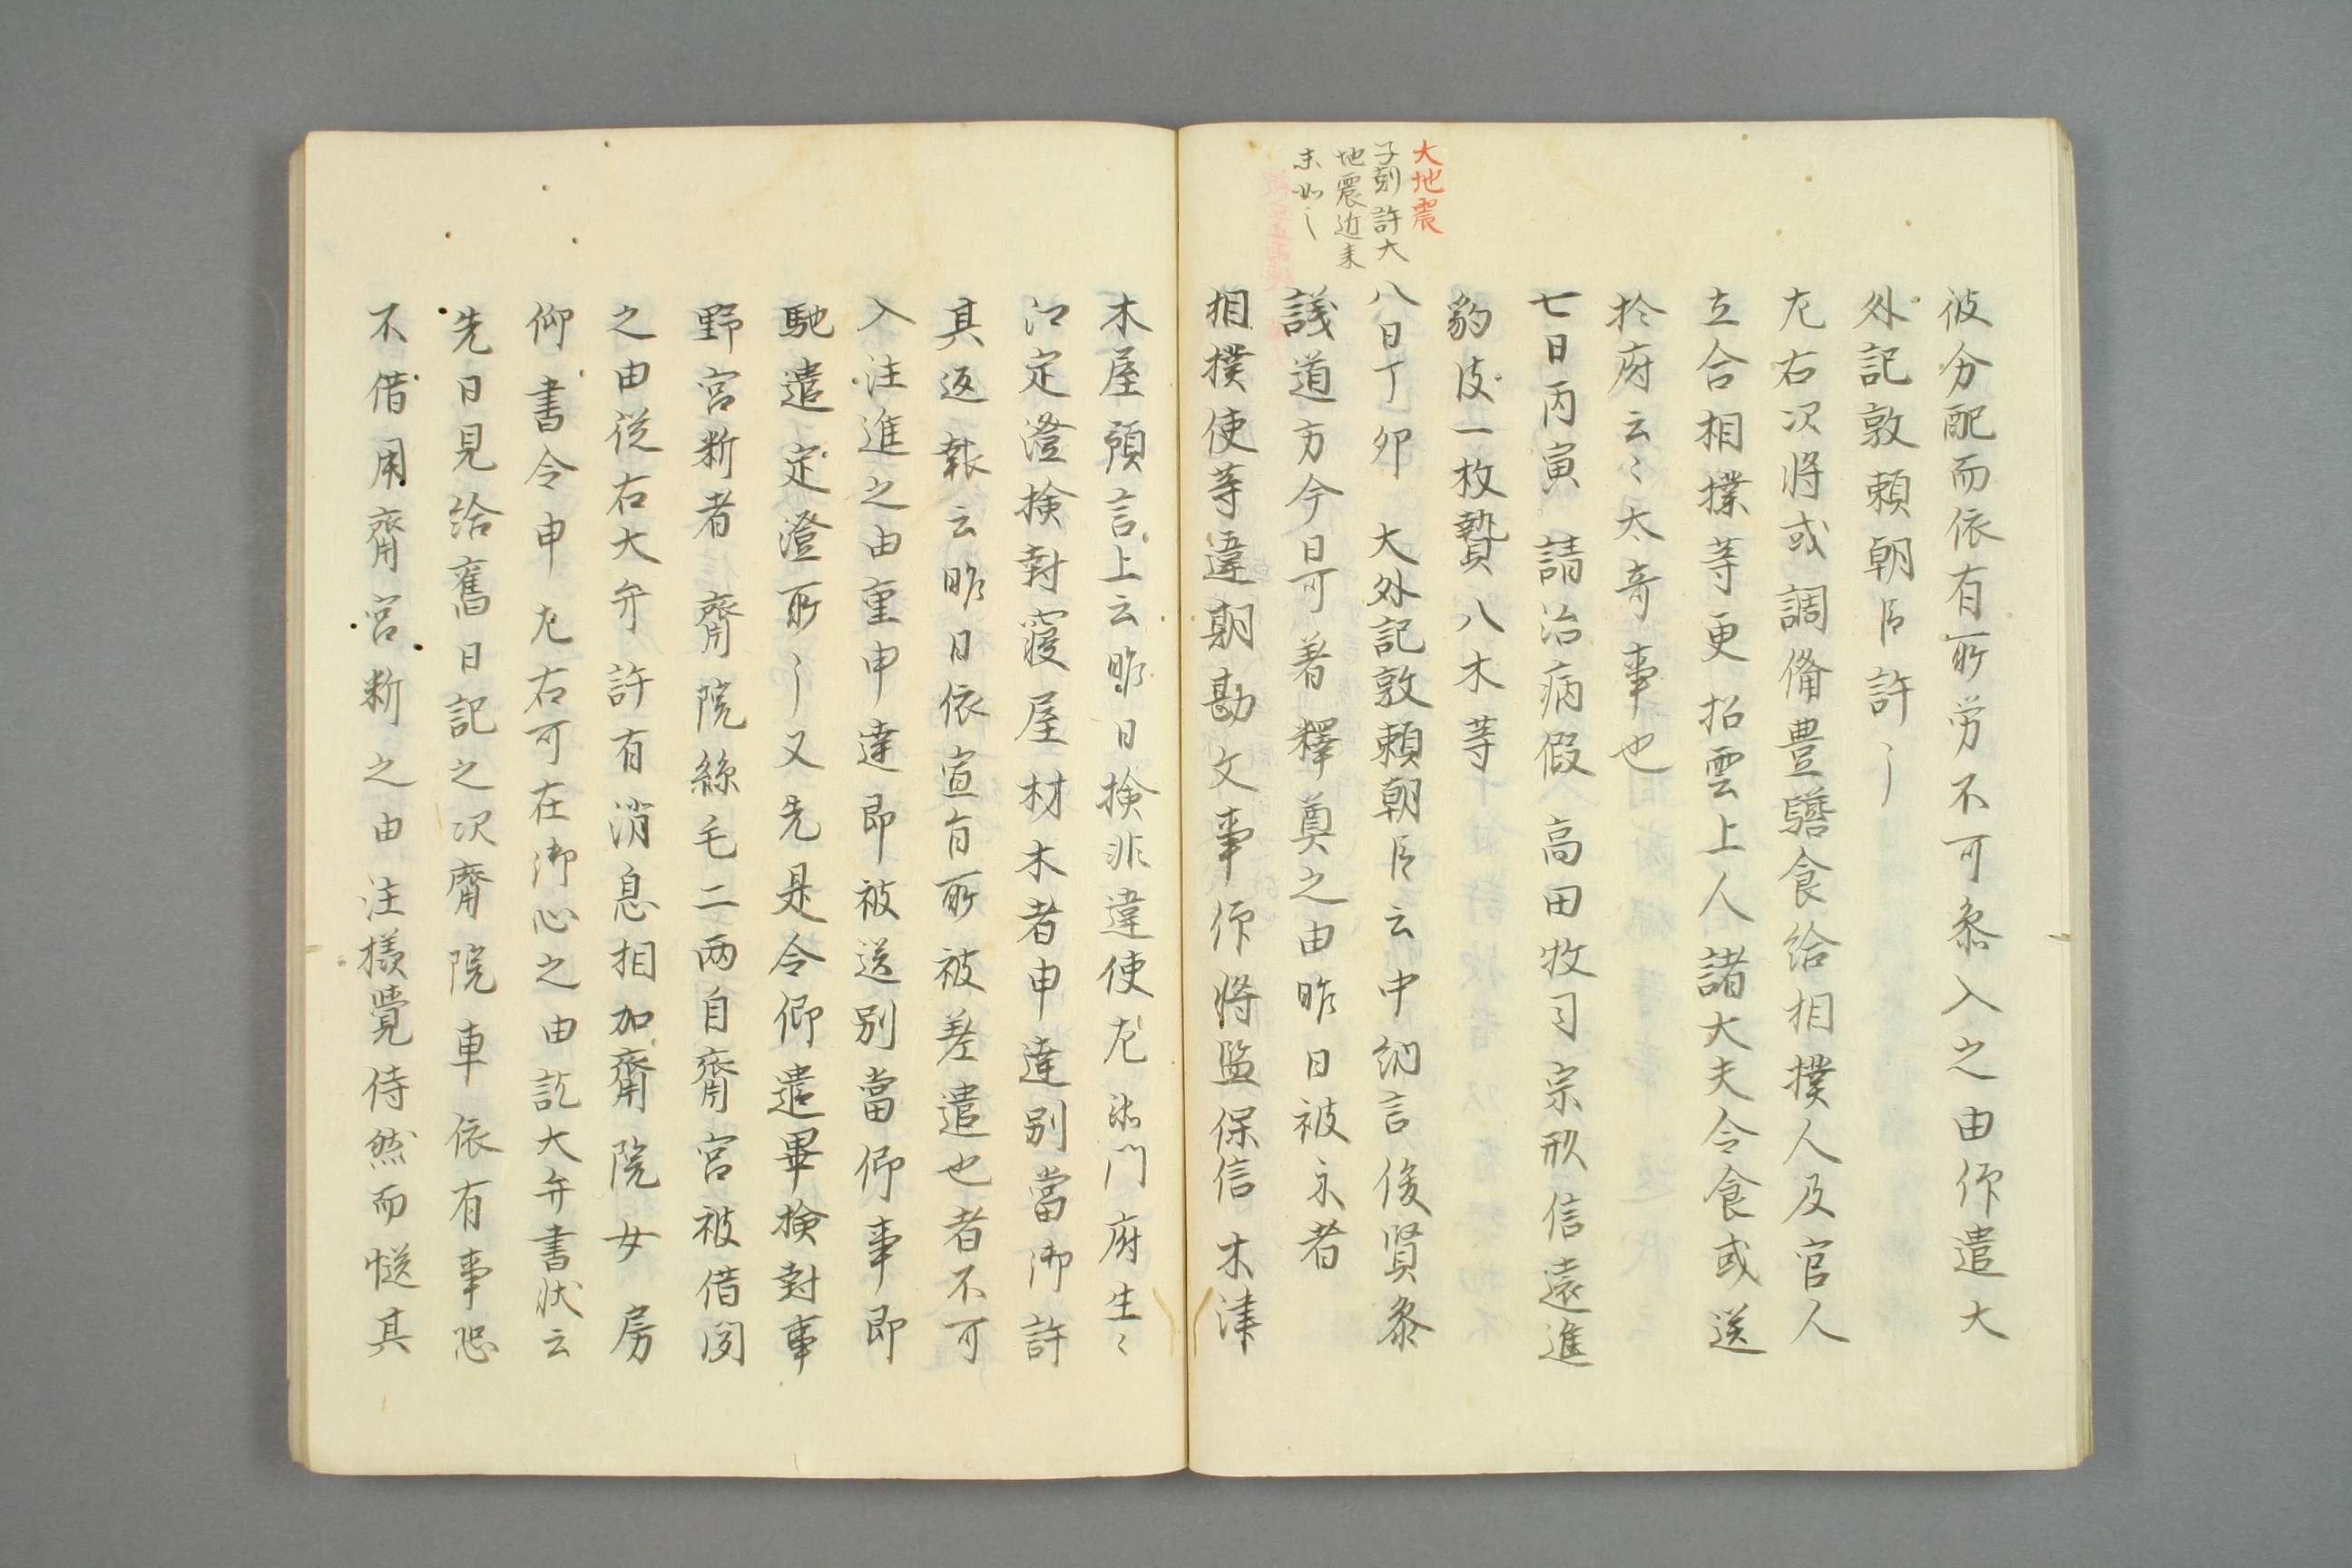 彼分配而依有所労不可参入之由仰遣大
外記敦頼朝臣許了
左右次将或調備豊饌食給相撲人及官人
立合相撲等更招雲上人諸大夫令食或送
於府云々太奇事也
七日丙寅 請治病假 高田牧司宗形信遠進
豹皮一枚贄八木等
大地震
子剋許大
地震近来
未如
八日丁卯 大外記敦頼朝臣云中納言俊賢参
議道方今日可着釋奠之由昨日被示者
相撲使等違期勘文事仰将監保信木津
木屋預言上云昨日検非違使左衛門府生々
江定澄検封寝屋材木者申達別當御許
其返報云昨日依宣旨所被差遣也者不可
入注進之由重申達即被送別當仰事即
馳遣定澄所了又先是令仰遣畢検封事
野宮斷者 齋院絲毛二両自齋宮被借関
之由従右大弁許有消息相加齋院女房
仰書令申左右可在御心之由訖大弁書状云
先日見給舊日記之次齋院車依有事忌
不借用齋宮断之由注様覺侍然而愷其